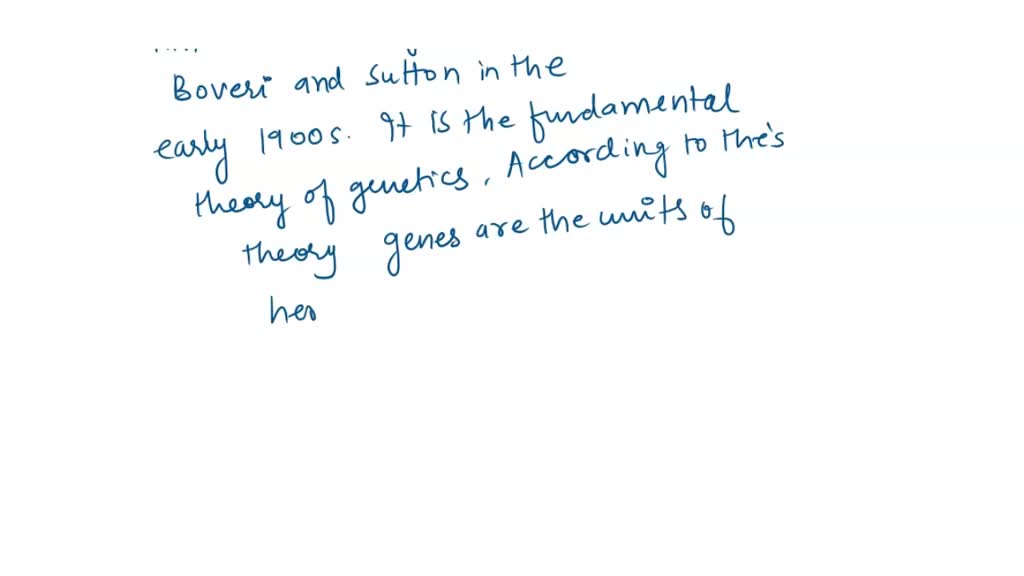 Boveri and Sutton in the
early 1900s. It is the fundamental
theory of genetics, According to this
theory genes are the units of
her